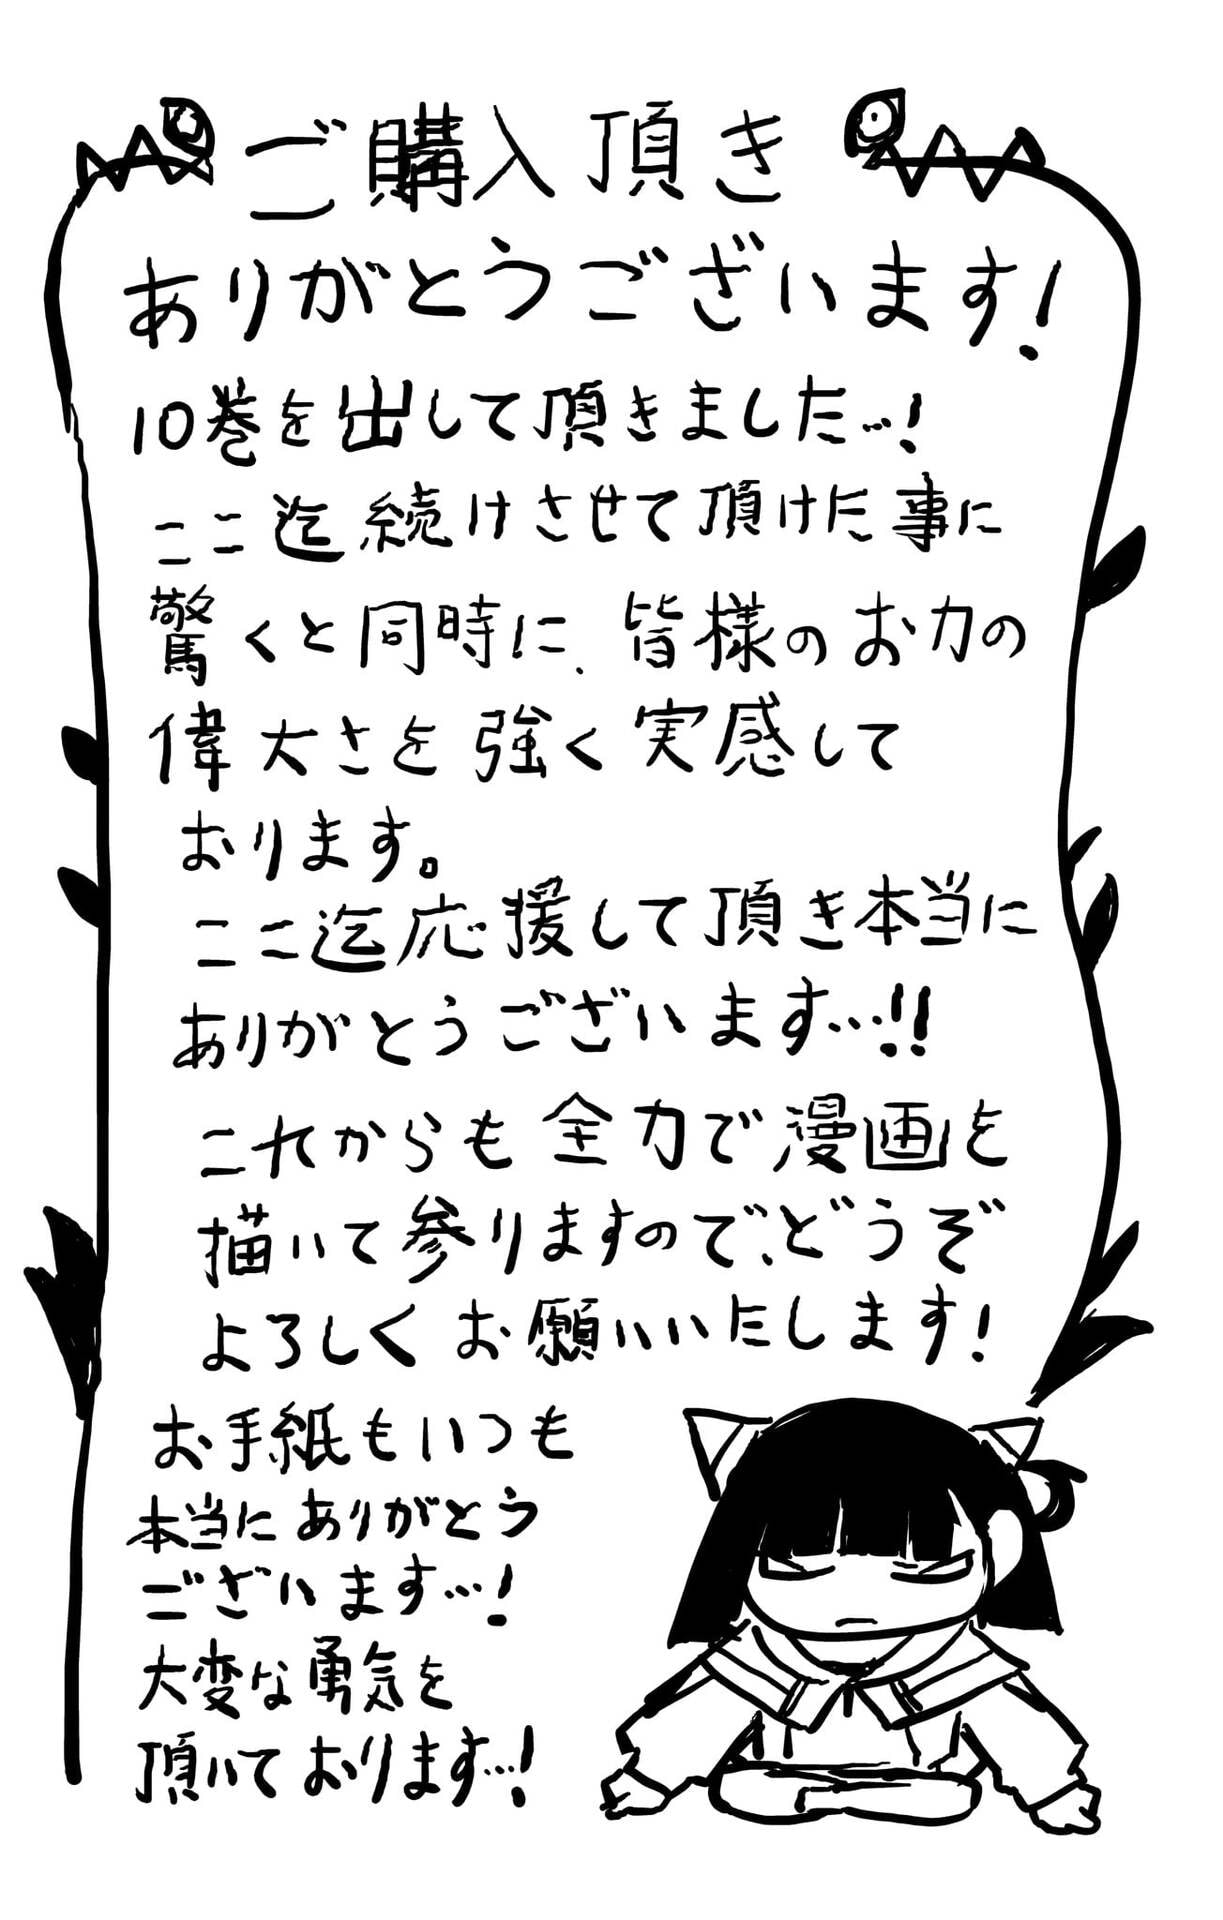 ご購入頂き
ありがとうございます!
10巻を出して頂きました…!
ここ迄続けさせて頂けた事に
驚くと同時に、皆様のお力の
偉大さを強く実感して
おります。
ここ迄応援して頂き本当に
ありがとうございます…!!
これからも全力で漫画を
描いて参りますので、どうぞ
よろしくお願いいたします!
お手紙もいつも
本当にありがとう
ございます…!
大変な勇気を
頂いております…!